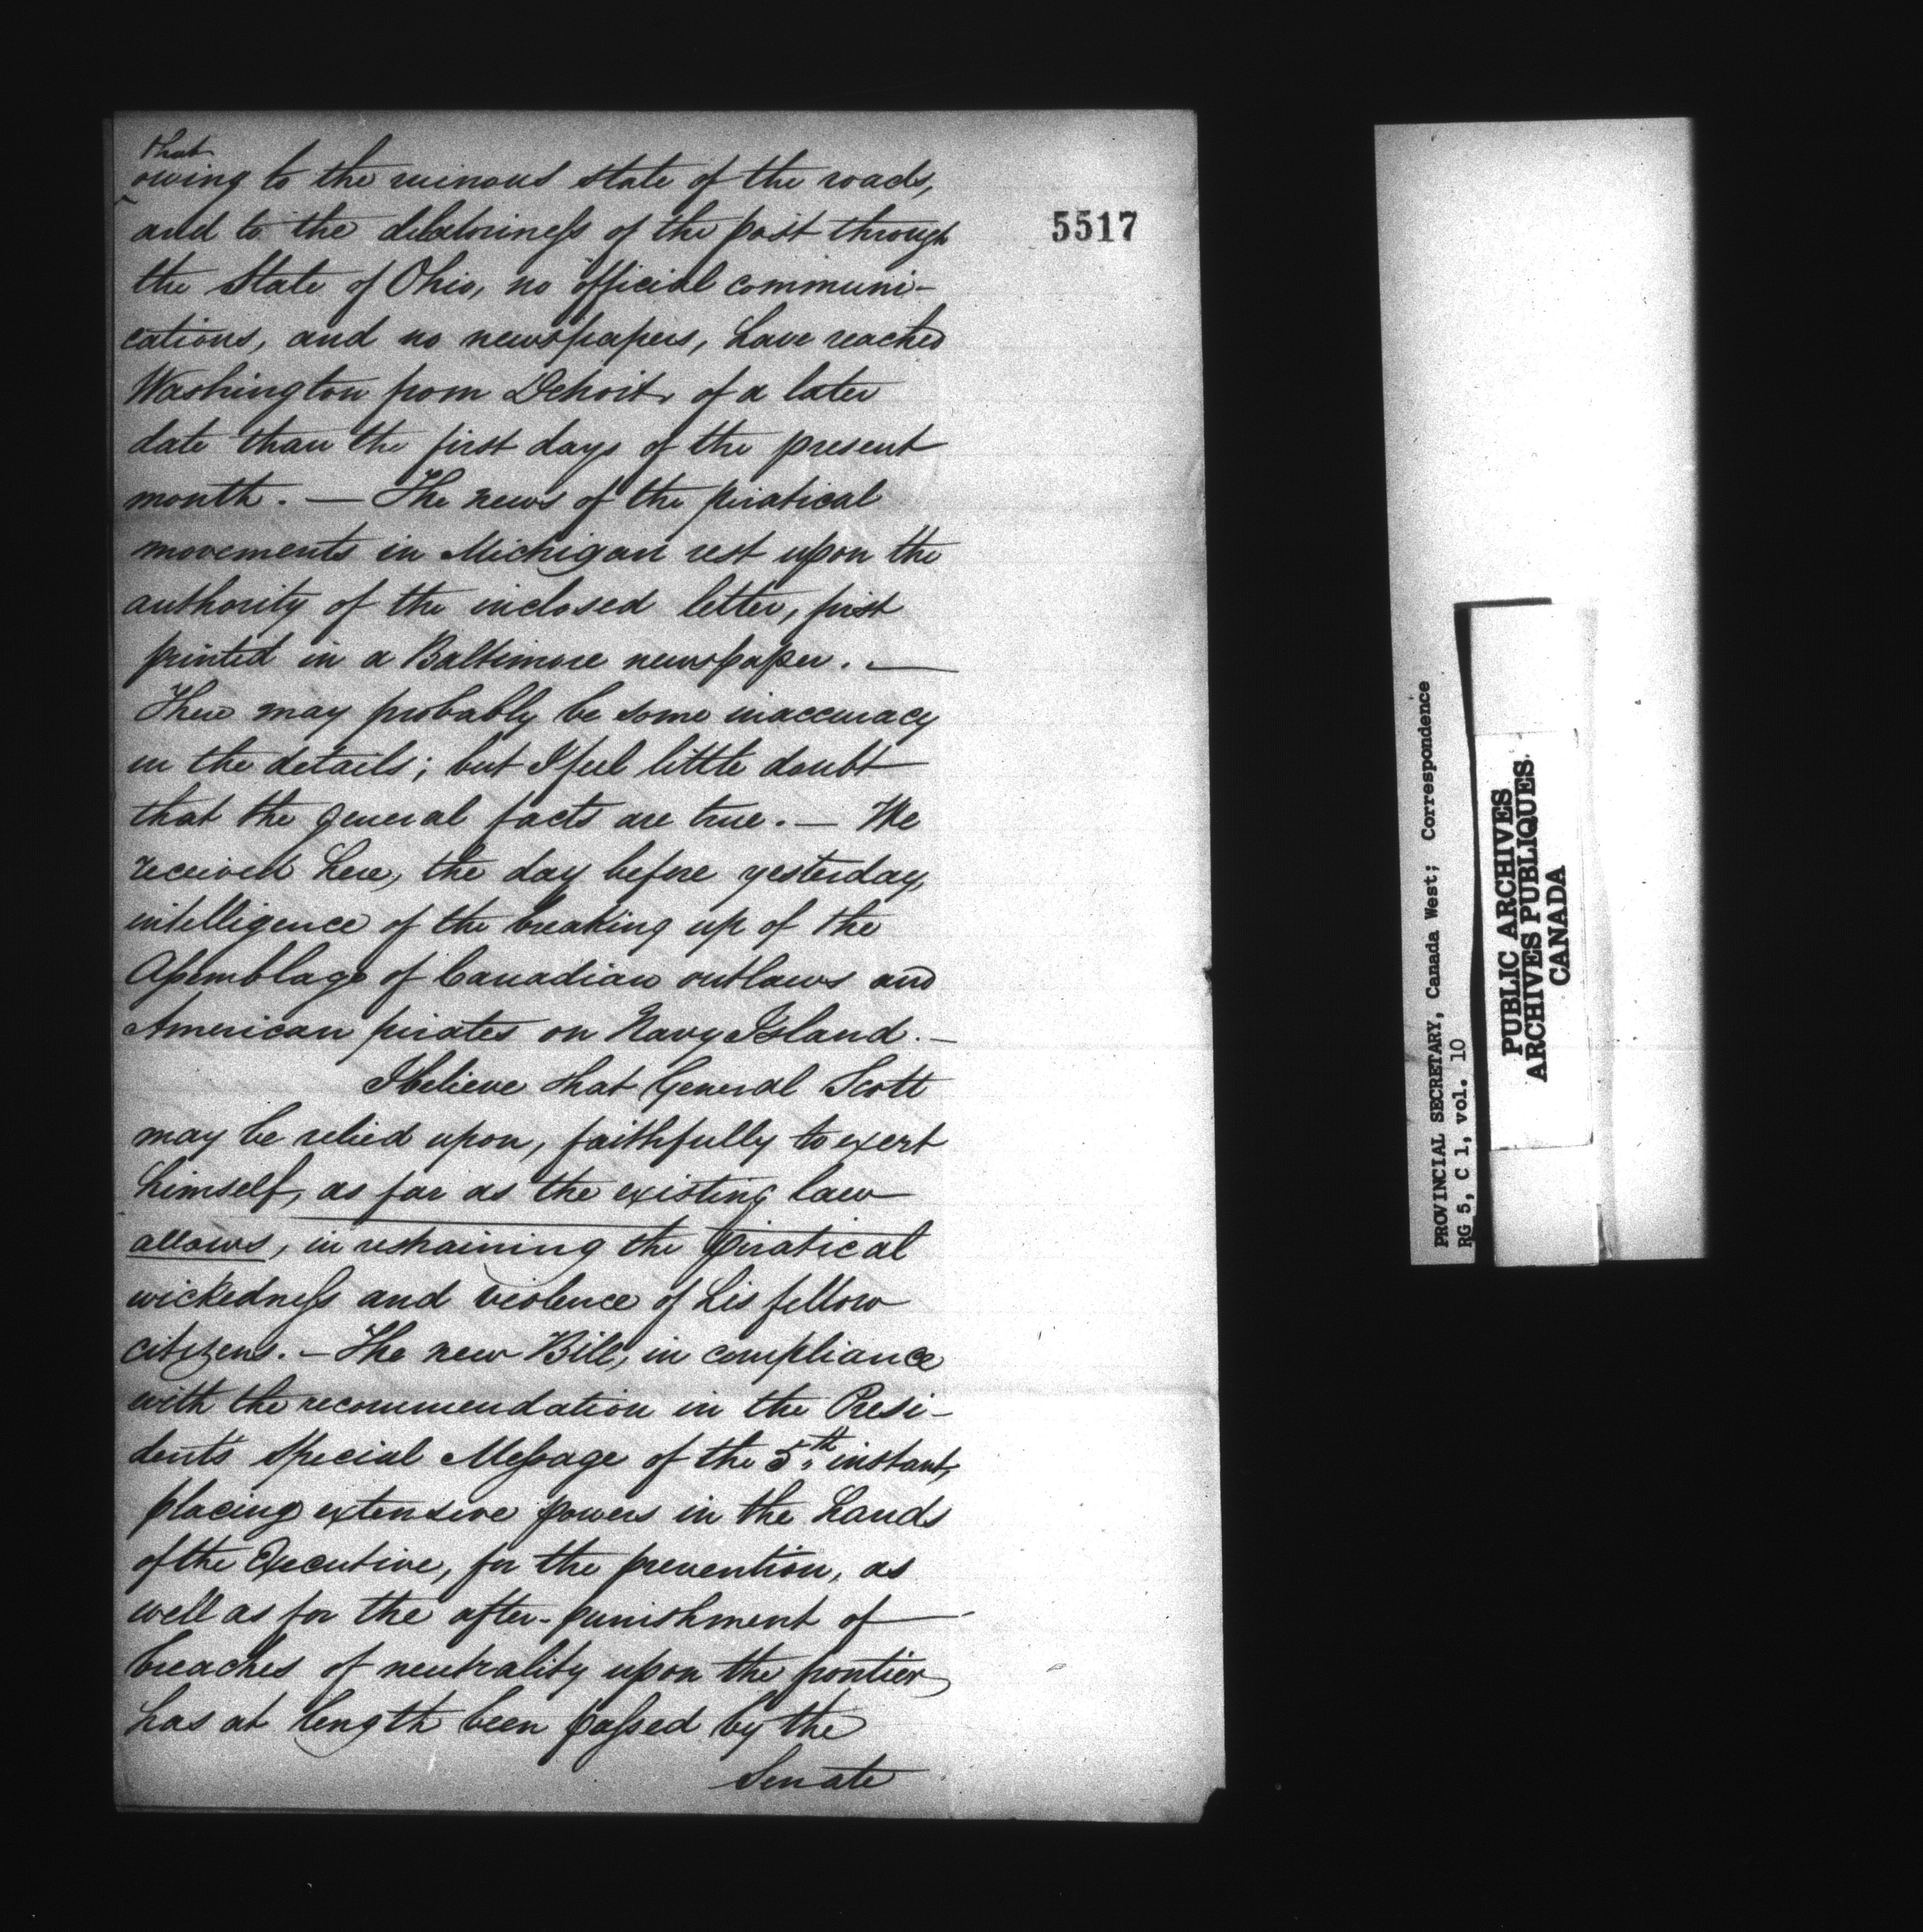 that
owing to the ruinous state of the roads,
and to the dilatoriness of the post through
the State of Ohio, no official communi-
cations, and no newspapers, have reached
Washington from Detroit, of a later
date than the first days of the present
month. — The news of the piratical
movements in Michigan rest upon the
authority of the inclosed letter, first
printed in a Baltimore newspaper. —
There may probably be some inaccuracy
in the details; but I feel little doubt
that the general facts are true. — We
received here, the day before yesterday,
intelligence of the breaking up of the
Assemblage of Canadian outlaws and
American pirates on Navy Island. —
I believe that General Scott
may be relied upon, faithfully to exert
himself, as far as the existing law
allows, in restraining the piratical
wickedness and violence of his fellow
citizens. — The new Bill, in compliance
with the recommendation in the Presi-
dent's Special Message of the 5th instant,
placing extensive powers in the hands
of the Executive, for the prevention, as
well as for the after-punishment of
breaches of neutrality upon the frontier,
has at length been passed by the
Senate
5517
PROVINCIAL SECRETARY, Canada West; Correspondence
RG 5, C 1, vol. 10
PUBLIC ARCHIVES
ARCHIVES PUBLIQUES
CANADA